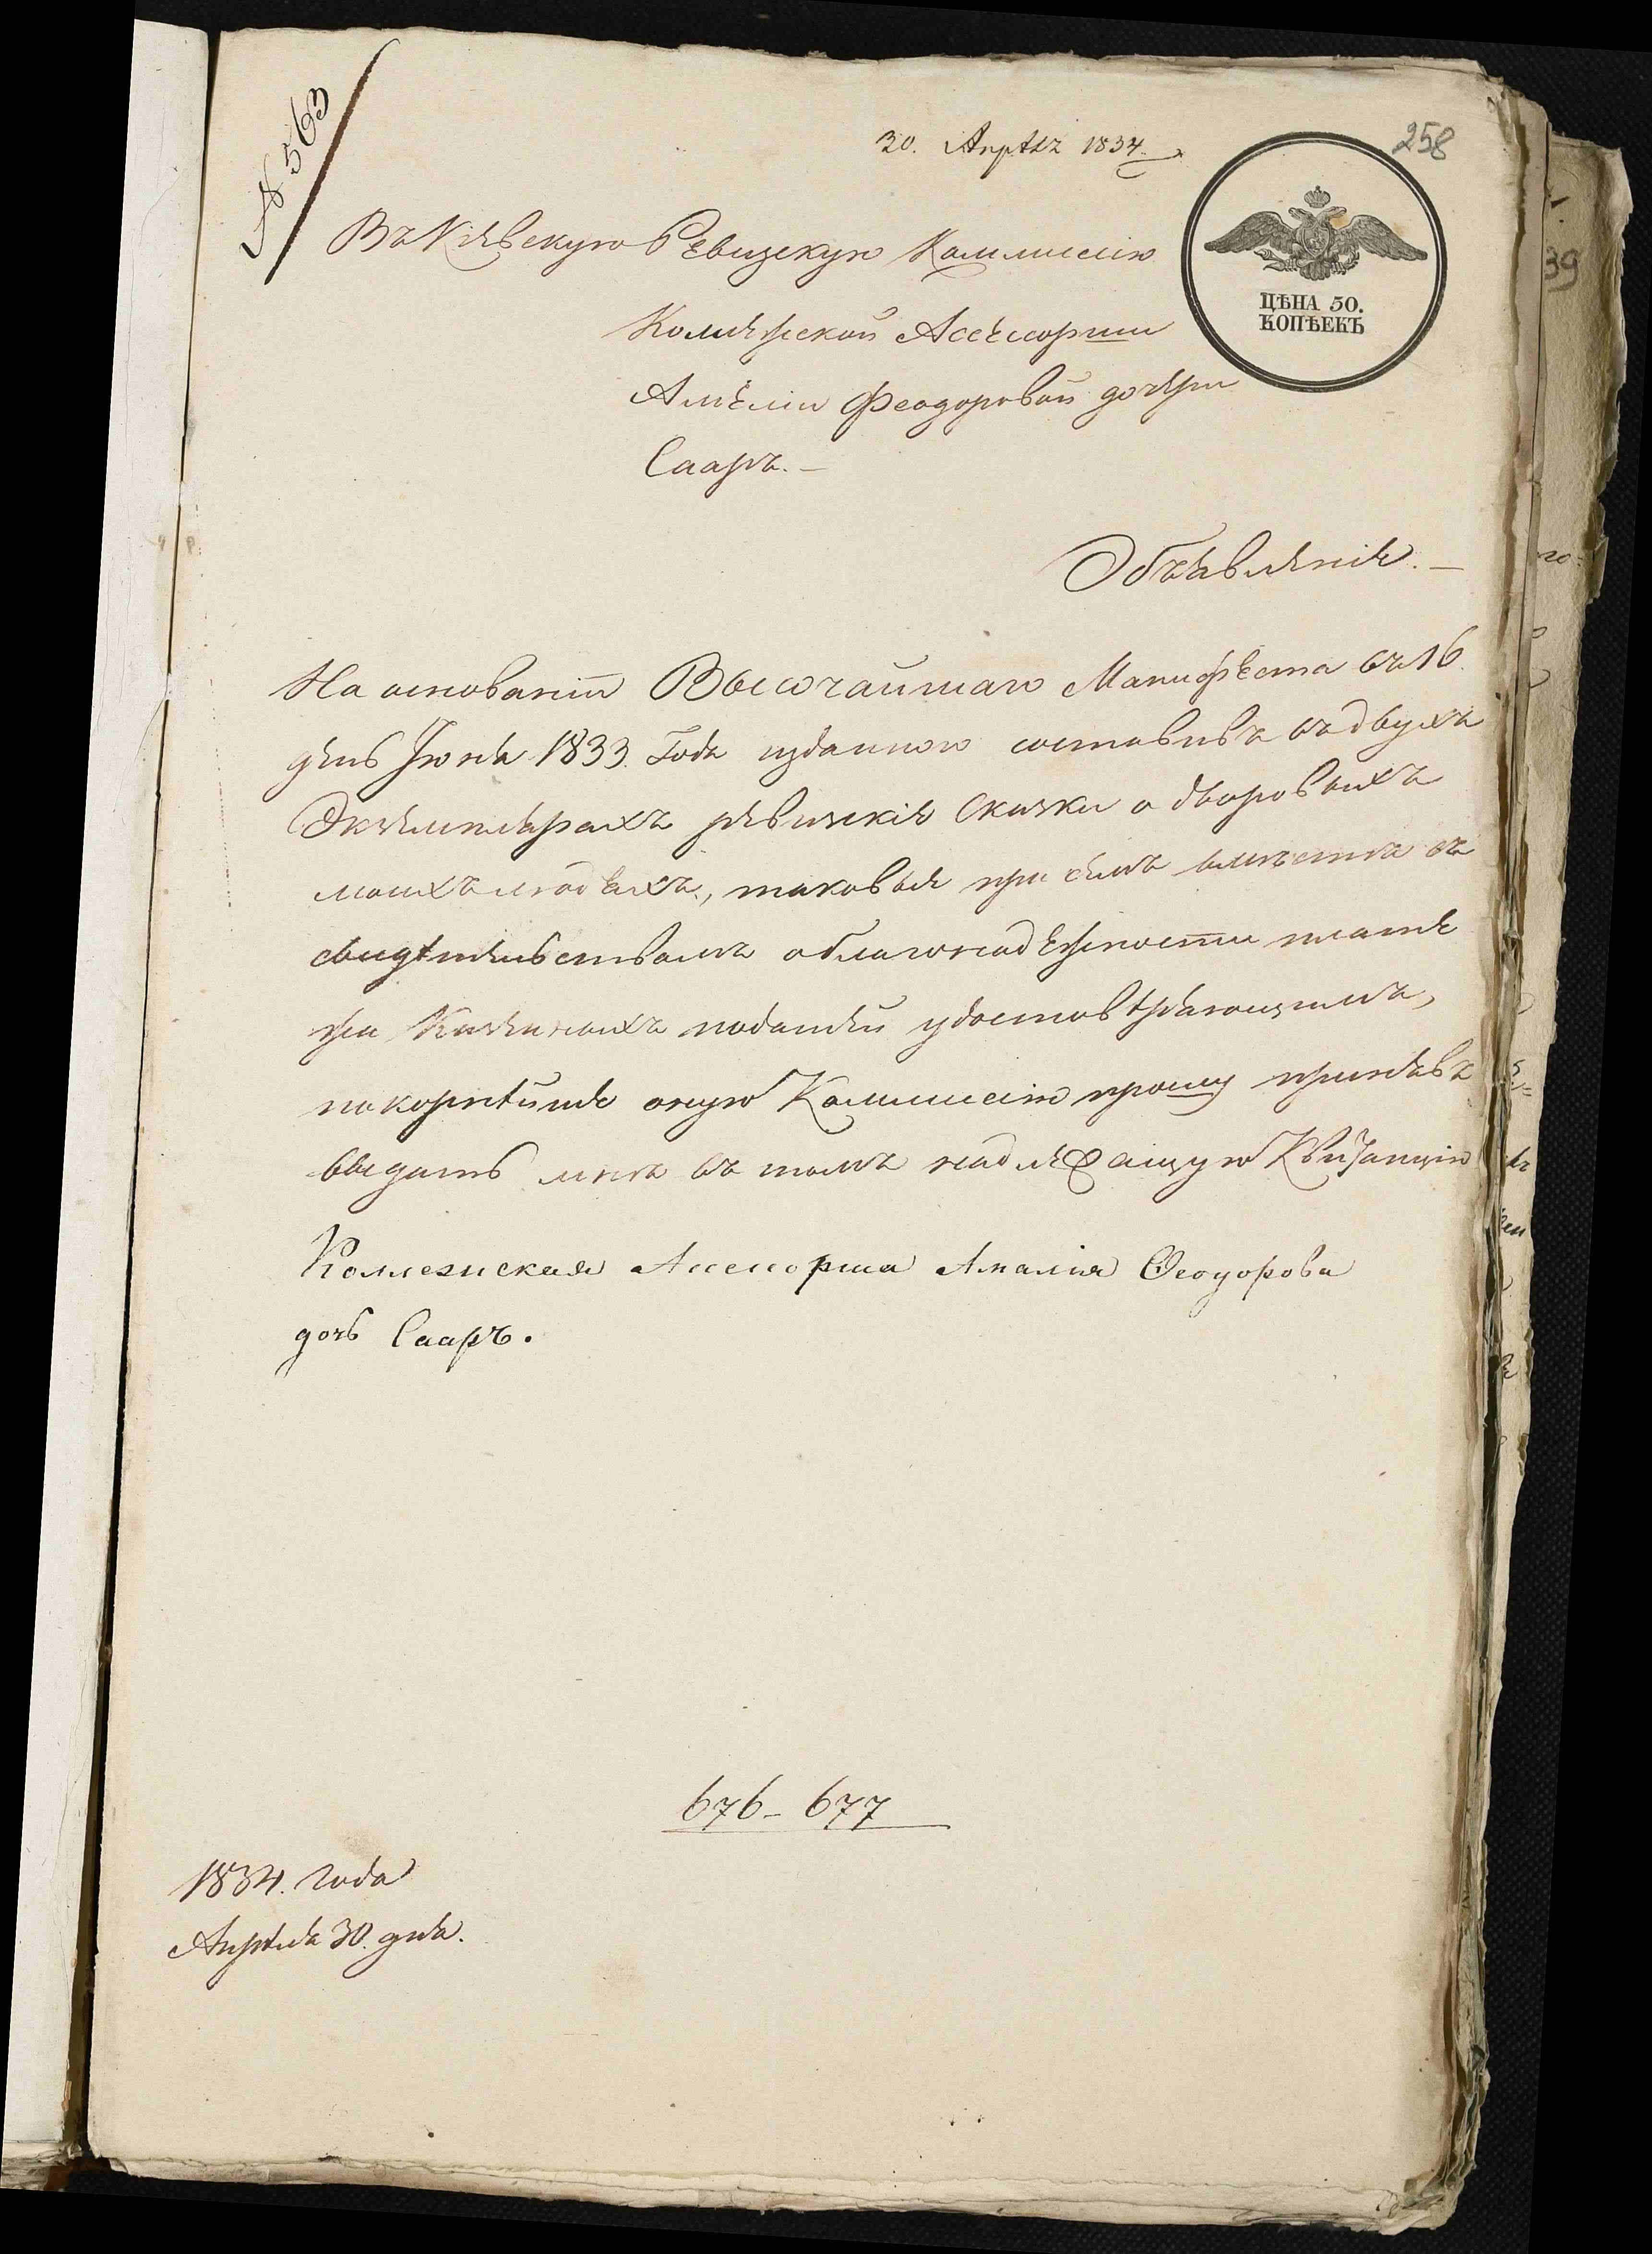 № 563
30. Апрѣля 1834.
258
Въ Кіевскую Ревизскую Коммиссію
ЦѢНА 50.
КОПѢЕКЪ
Колежской Асесорши
Амеліи Феодоровой дочери
Сааръ.
Объявленіе.
На основаніи Высочайшаго Манифеста въ 16.
день Іюня 1833. Года изданного составивъ въ двухъ
Экземплярахъ ревизскіе Сказки о дворовыхъ
моихъ людехъ, таковыя при семъ вместе съ
свидѣтельствомъ о благонадежности плате
жа Казенныхъ податей удостовѣряющимъ,
покорнѣйше оную Коммиссію прошу принявъ
выдать мне въ томъ надлежащую Квитанцію
Коллежская Ассесорша Амалія Ѳеодорова
дочь Сааръ.
676 - 677
1834. Года
Апрѣля 30. дня.
39